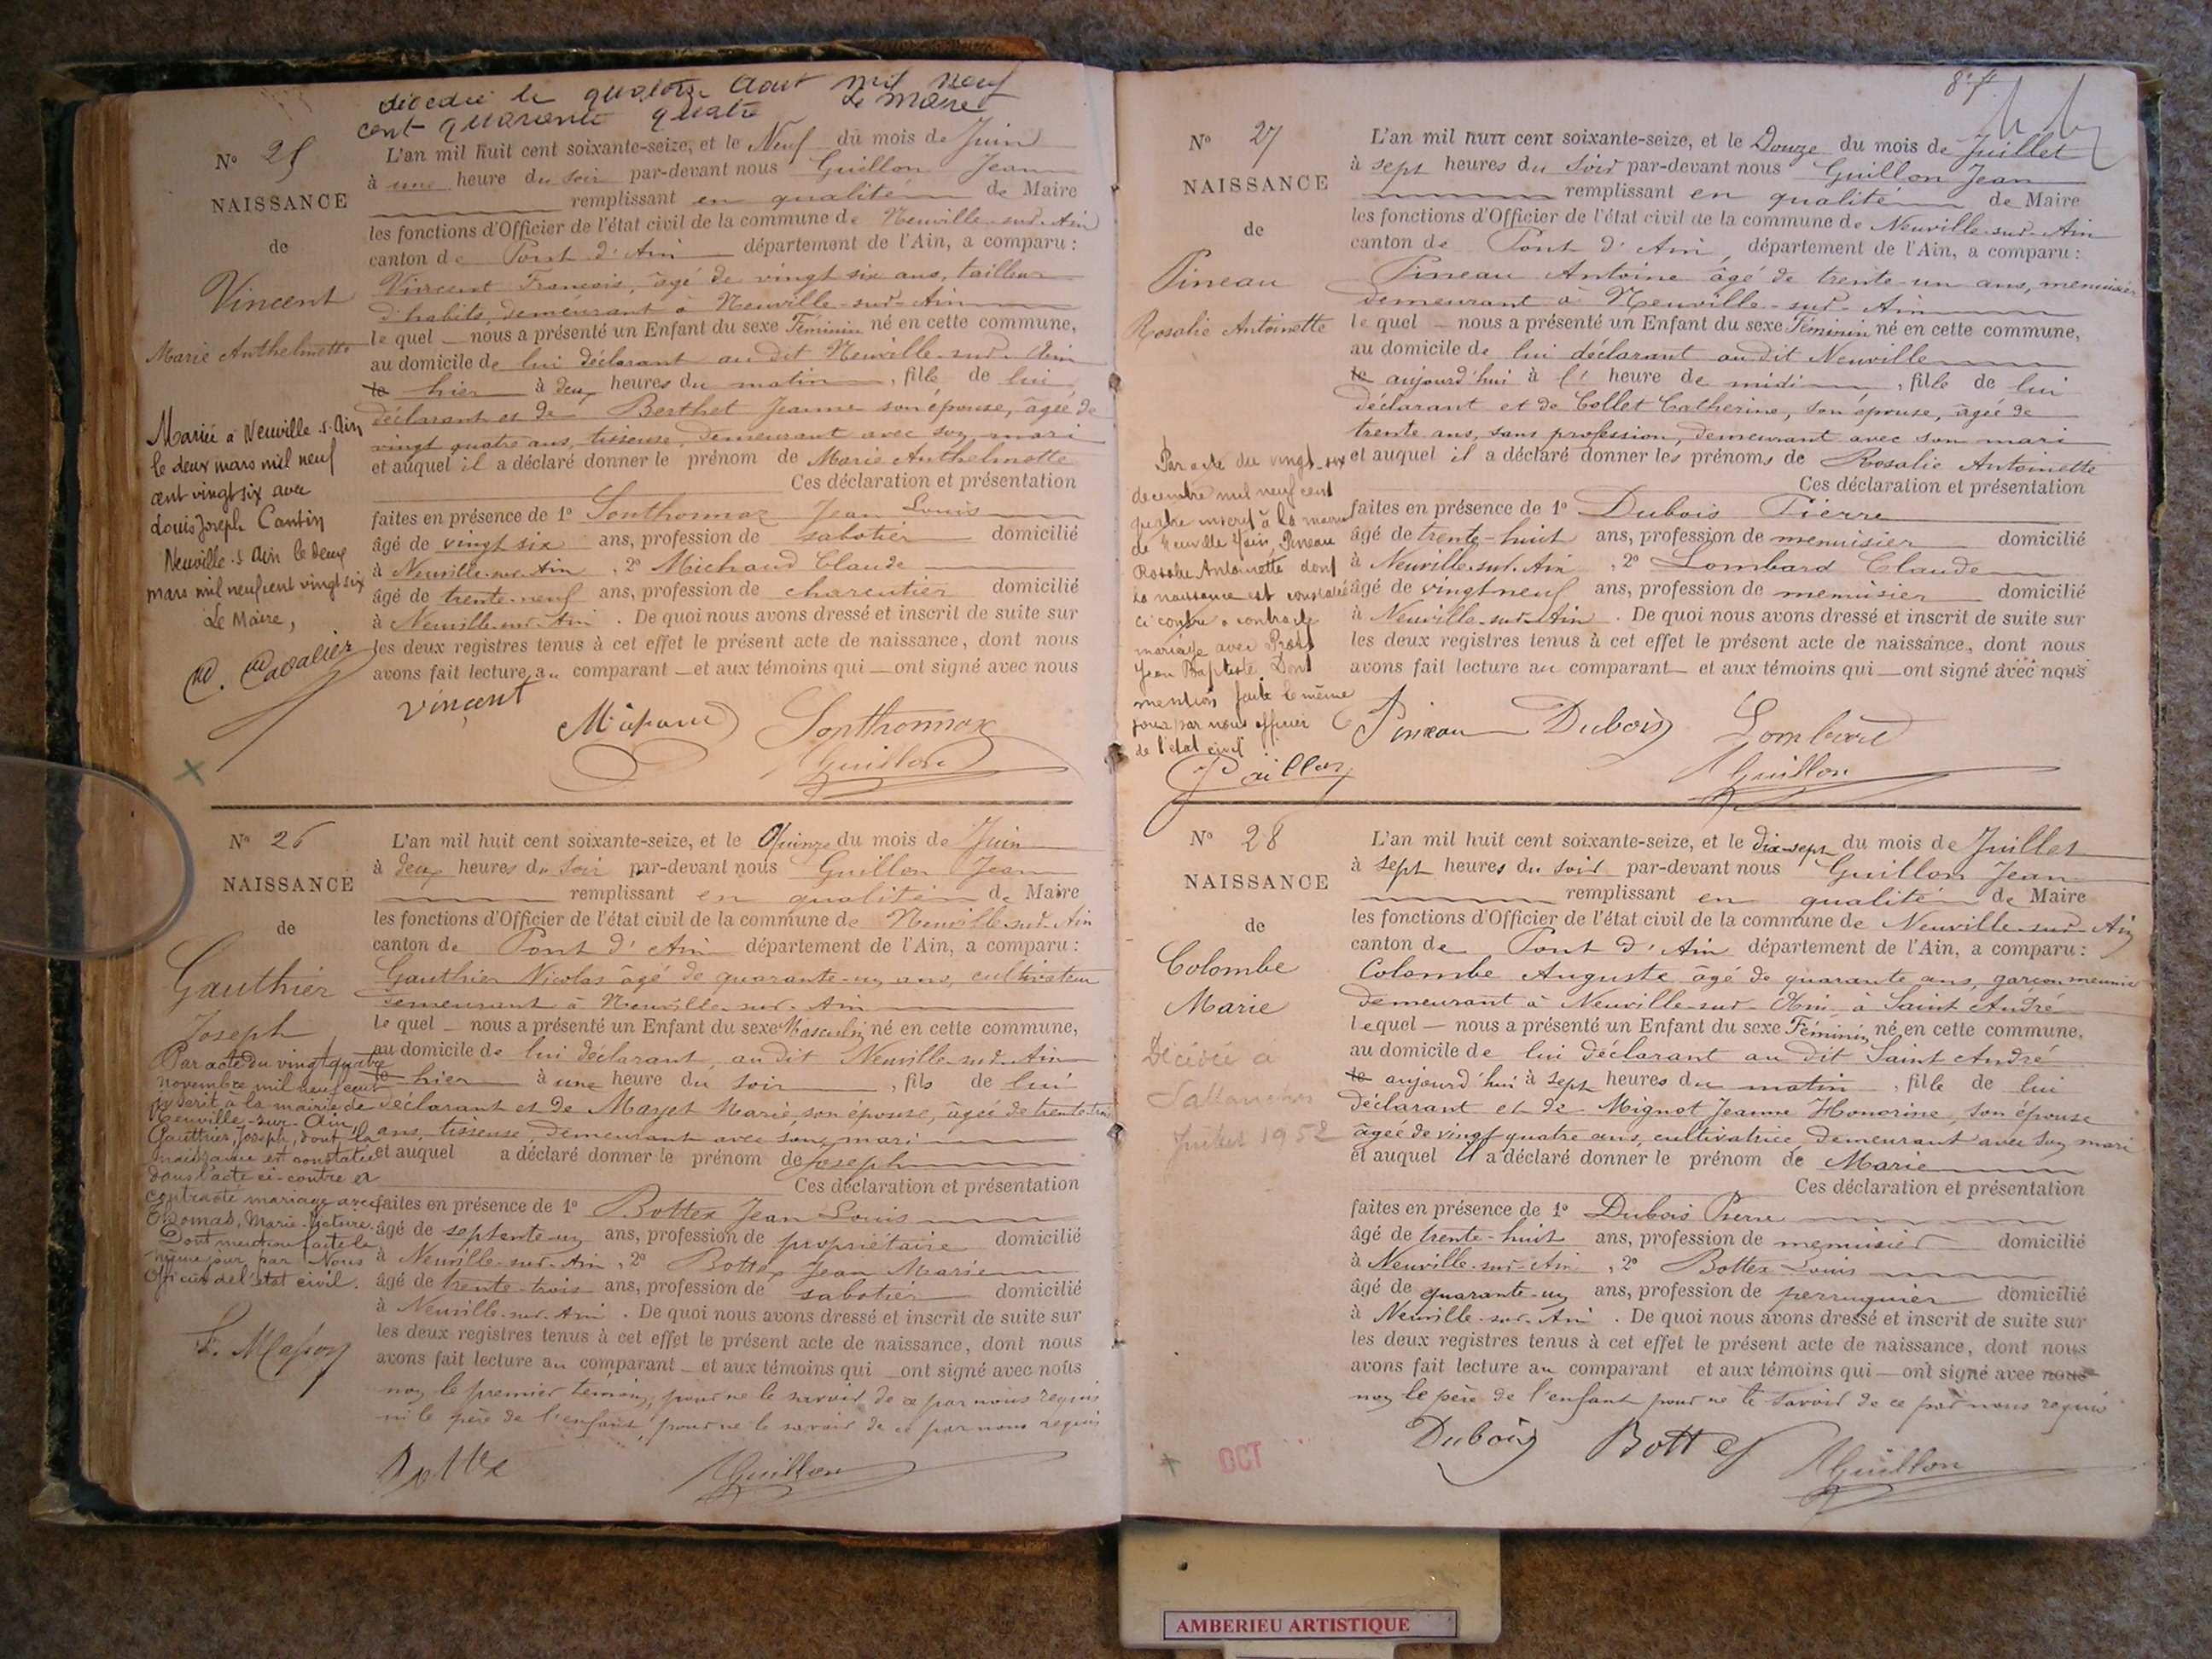 décédée le quatorze Aout mil neuf
cent quarante quatre le Maire
N° 25
NAISSANCE
de
Vincent
Marie Anthelmette
Mariée à Neuville s. Ain
le deux mars mil neuf
cent vingt six avec
Louis Joseph Cantin
Neuville s Ain le deux
mars mil neuf cent vingt six
Le Maire,
L'an mil huit cent soixante-seize, et le Neuf du mois de Juin
à une heure du soir par-devant nous Guillon Jean
remplissant en qualité de Maire
les fonctions d'Officier de l'état civil de la commune de Neuville-sur-Ain
canton de Pont d'Ain département de l'Ain, a comparu :
Vincent François, âgé de vingt six ans, tailleur
d'habits, demeurant à Neuville-sur-Ain
le quel nous a présenté un Enfant du sexe Féminin né en cette commune,
au domicile de lui déclarant au dit Neuville-sur-Ain
le hier à deux heures du matin, fille de lui
déclarant et de Berthet Jeanne son épouse, âgée de
vingt quatre ans, tisseuse, demeurant avec son mari
et auquel il a déclaré donner le prénom de Marie Anthelmette
Ces déclaration et présentation
faites en présence de 1° Sonthonnax Jean Louis
âgé de vingt six ans, profession de sabotier domicilié
à Neuville-sur-Ain, 2° Michaud Claude
âgé de trente-neuf ans, profession de charcutier domicilié
à Neuville-sur-Ain. De quoi nous avons dressé et inscrit de suite sur
les deux registres tenus à cet effet le présent acte de naissance, dont nous
avons fait lecture au comparant et aux témoins qui ont signé avec nous
Vincent
Sonthonnax
Guillon
N° 26
NAISSANCE
de
Gauthier
Joseph
Par acte du vingt quatre
novembre mil neuf cent
inscrit à la mairie de
Neuville-sur-Ain,
Gauthier, Joseph, dont la
naissance est constatée
dans l'acte ci-contre a
contracté mariage avec
Thomas, Marie
Dont mention faite le
même jour par Nous
Officier de l'état civil.
L'an mil huit cent soixante-seize, et le Quinze du mois de Juin
à deux heures du soir par-devant nous Guillon Jean
remplissant en qualité de Maire
les fonctions d'Officier de l'état civil de la commune de Neuville-sur-Ain
canton de Pont d'Ain département de l'Ain, a comparu :
Gauthier Nicolas âgé de quarante-un ans, cultivateur
demeurant à Neuville-sur-Ain
le quel nous a présenté un Enfant du sexe Masculin né en cette commune,
au domicile de lui déclarant, au dit Neuville-sur-Ain
le hier à une heure du soir, fils de lui
déclarant et de Mayet Marie, son épouse, âgée de trente trois
ans, tisseuse, demeurant avec son mari
et auquel a déclaré donner le prénom de Joseph
Ces déclaration et présentation
faites en présence de 1° Bottex Jean Louis
âgé de septante-un ans, profession de propriétaire domicilié
à Neuville-sur-Ain, 2° Bottex Jean Marie
âgé de trente-trois ans, profession de sabotier domicilié
à Neuville-sur-Ain. De quoi nous avons dressé et inscrit de suite sur
les deux registres tenus à cet effet le présent acte de naissance, dont nous
avons fait lecture au comparant et aux témoins qui ont signé avec nous
non le premier témoin, pour ne le savoir de ce par nous requis
ni le père de l'enfant, pour ne le savoir de ce par nous requis
Guillon
87
N° 27
NAISSANCE
de
Pineau
Rosalie Antoinette
Par acte du vingt-six
décembre mil neuf cent
quatre inscrit à la mairie
de Neuville s/Ain, Pineau
Rosalie Antoinette, dont
la naissance est constatée
ci contre a contracté
mariage avec
Jean Baptiste. Dont
mention faite le même
jour par nous officier
de l'état civil
L'an mil huit cent soixante-seize, et le Douze du mois de Juillet
à sept heures du soir par-devant nous Guillon Jean
remplissant en qualité de Maire
les fonctions d'Officier de l'état civil de la commune de Neuville-sur-Ain
canton de Pont d'Ain, département de l'Ain, a comparu :
Pineau Antoine âgé de trente-un ans, menuisier
demeurant à Neuville-sur-Ain
le quel nous a présenté un Enfant du sexe Féminin né en cette commune,
au domicile de lui déclarant au dit Neuville
le aujourd'hui à heure de midi, fille de lui
déclarant et de Collet Catherine, son épouse, âgée de
trente ans, sans profession, demeurant avec son mari
et auquel il a déclaré donner les prénoms de Rosalie Antoinette
Ces déclaration et présentation
faites en présence de 1° Dubois Pierre
âgé de trente-huit ans, profession de menuisier domicilié
à Neuville-sur-Ain, 2° Lombard Claude
âgé de vingt neuf ans, profession de menuisier domicilié
à Neuville-sur-Ain. De quoi nous avons dressé et inscrit de suite sur
les deux registres tenus à cet effet le présent acte de naissance, dont nous
avons fait lecture au comparant et aux témoins qui ont signé avec nous
Pineau Dubois Lombard
Guillon
N° 28
NAISSANCE
de
Colombe
Marie
Décédée à
Sallanches
Juillet 1952
L'an mil huit cent soixante-seize, et le dix-sept du mois de Juillet
à sept heures du soir par-devant nous Guillon Jean
remplissant en qualité de Maire
les fonctions d'Officier de l'état civil de la commune de Neuville-sur-Ain
canton de Pont d'Ain département de l'Ain, a comparu :
Colombe Auguste âgé de quarante ans, garçon meunier
demeurant à Neuville-sur-Ain, à Saint André
lequel nous a présenté un Enfant du sexe Féminin né en cette commune,
au domicile de lui déclarant au dit Saint André
le aujourd'hui à sept heures du matin, fille de lui
déclarant et de Mignot Jeanne Honorine, son épouse
âgée de vingt quatre ans, cultivatrice demeurant avec son mari
et auquel il a déclaré donner le prénom de Marie
Ces déclaration et présentation
faites en présence de 1° Dubois Pierre
âgé de trente-huit ans, profession de menuisier domicilié
à Neuville-sur-Ain, 2° Bottex Louis
âgé de quarante-un ans, profession de perruquier domicilié
à Neuville-sur-Ain. De quoi nous avons dressé et inscrit de suite sur
les deux registres tenus à cet effet le présent acte de naissance, dont nous
avons fait lecture au comparant et aux témoins qui ont signé avec nous
non le père de l'enfant pour ne le savoir de ce par nous requis
Dubois Bottex
Guillon
OCT
AMBERIEU ARTISTIQUE